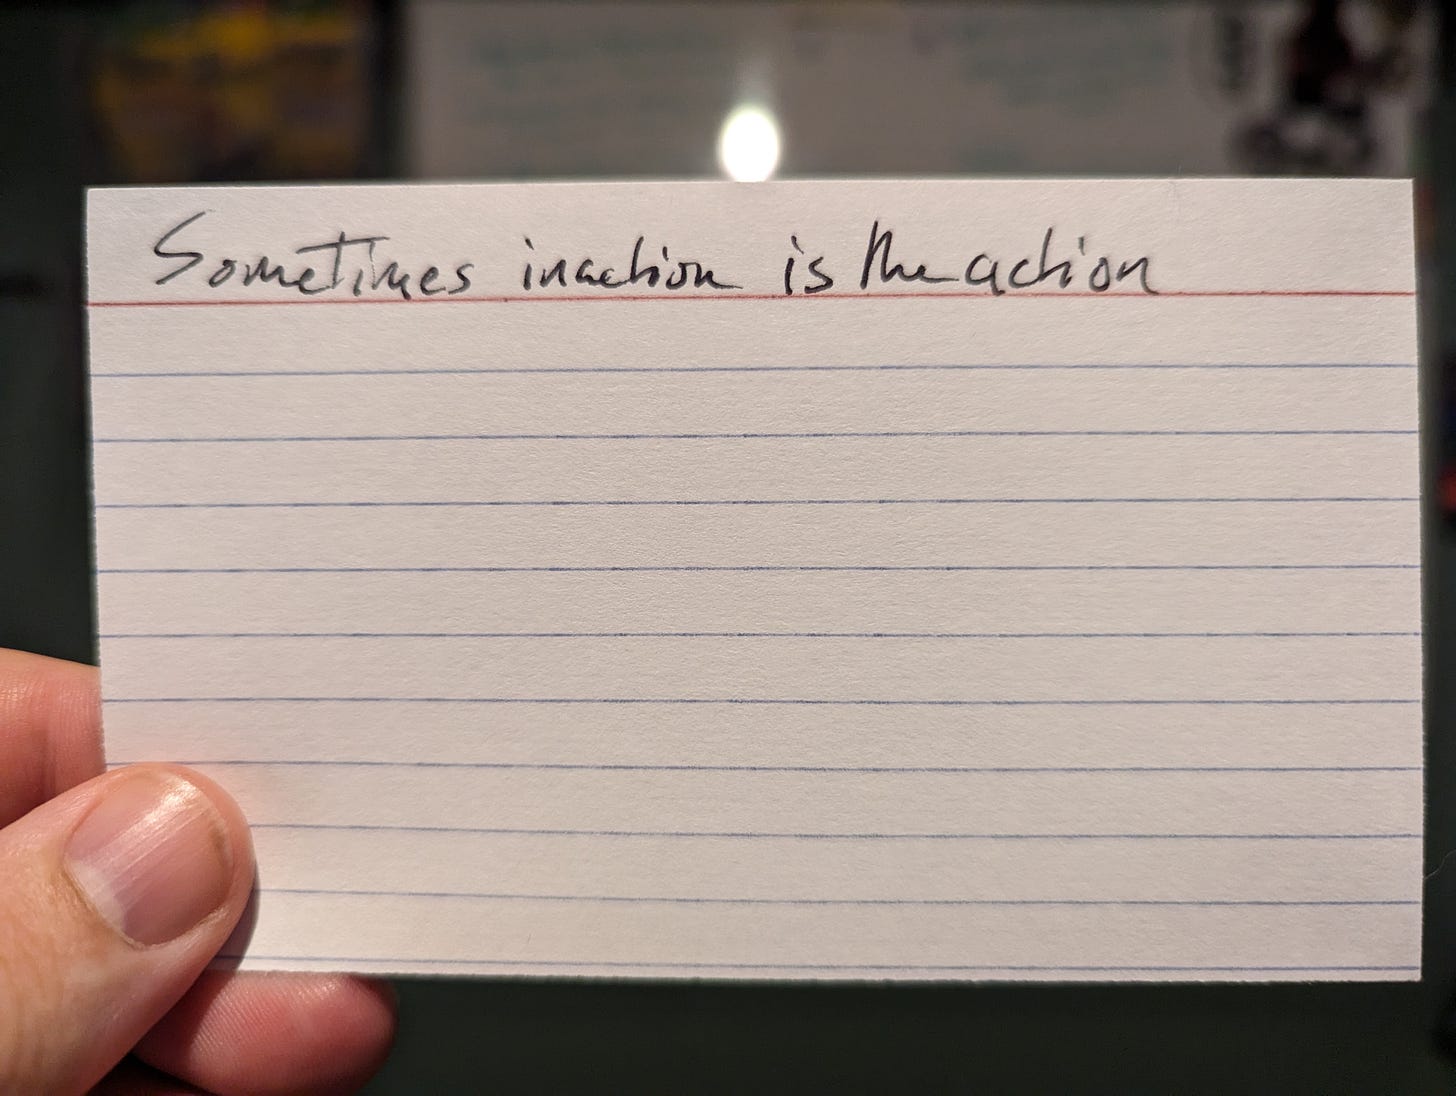 Sometimes inaction is the action